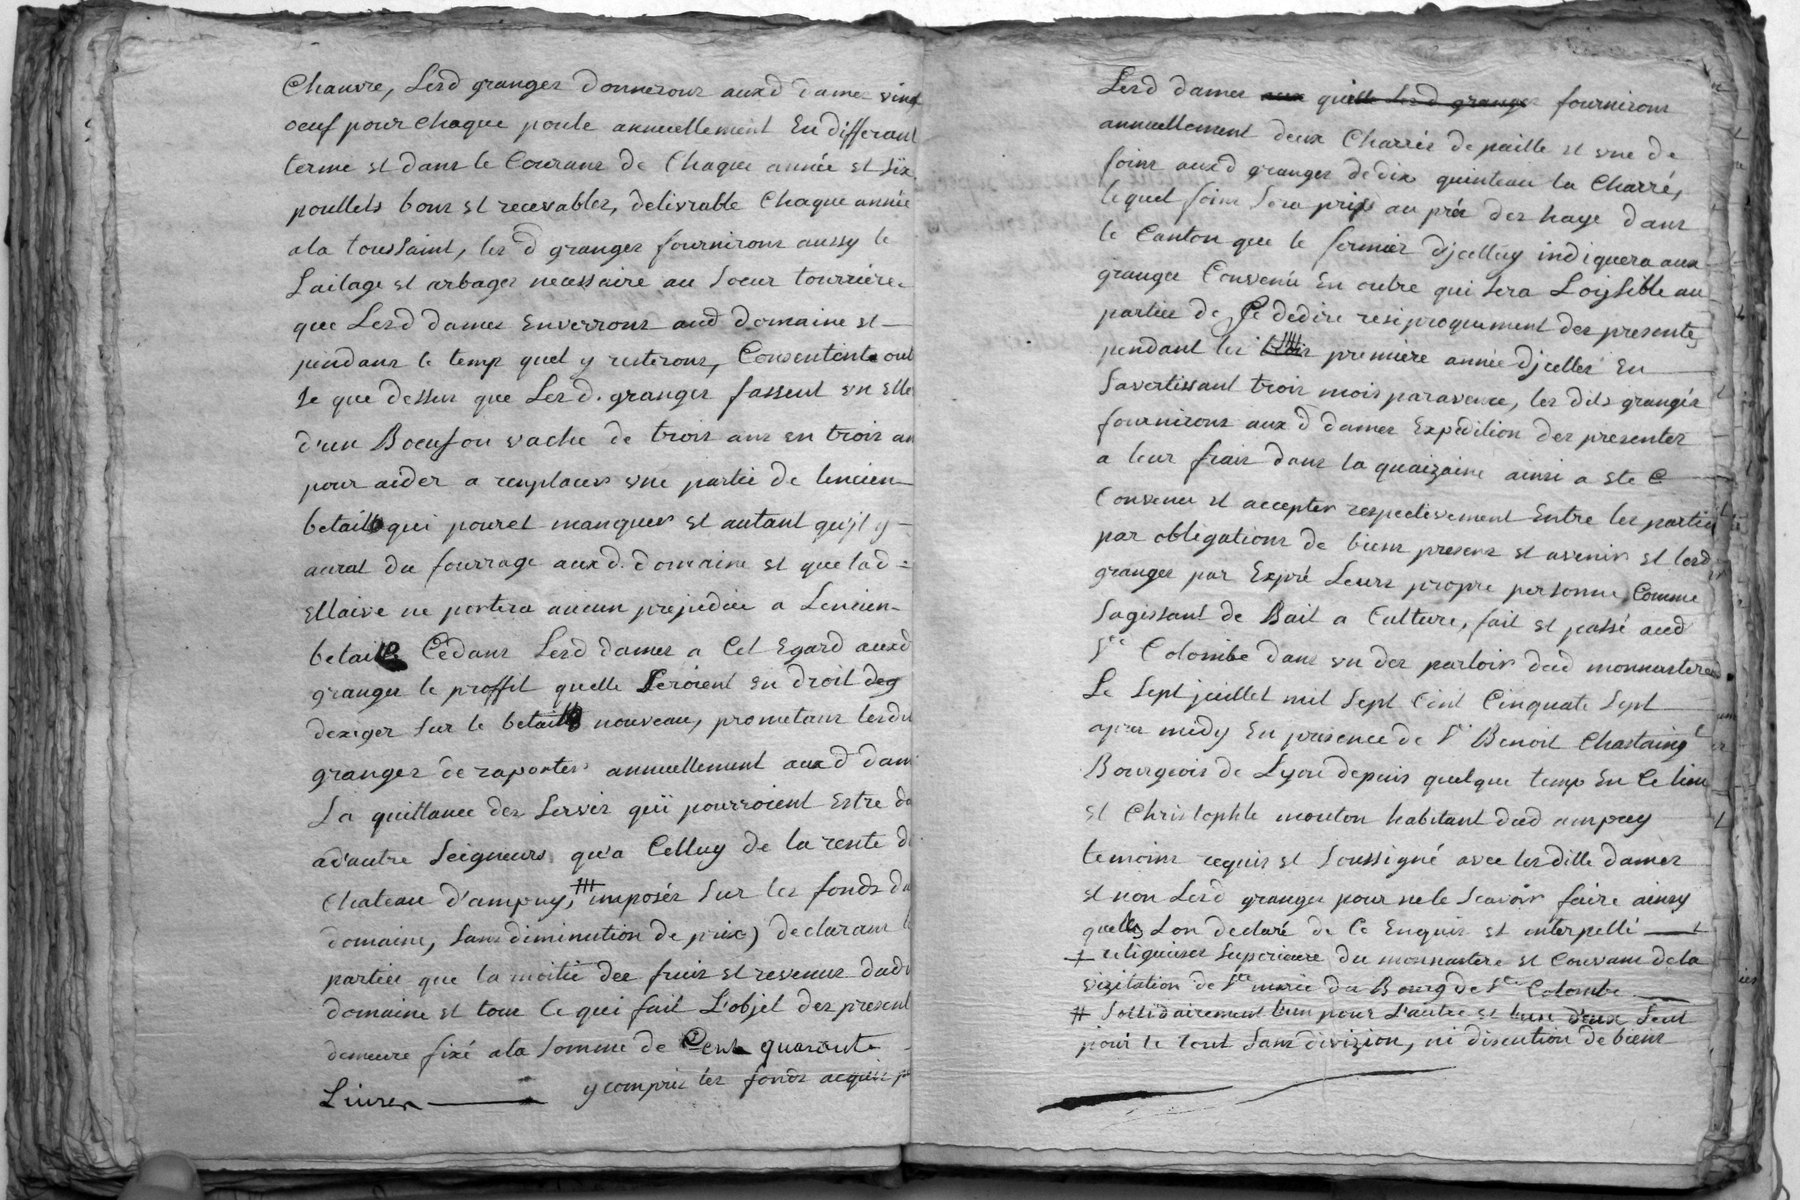 Chanvre, Lesd granger donneront auxd dames vingt
oeuf pour chaque poule annuellement En differant
terme et dans le Courant de Chaque année et six
poullets bons et recevables, delivrable Chaque année
ala toussaint, les d granger fourniront aussy le
Laitage et arbages necessaire au Soeur tourriere
que Lesd dames Enverront aud domaine et
pendant le temp quel y resterons, Consentent out
le que dessus que Lesd. granger fassent un
d'un Boeuf ou vache de trois ans en trois an
pour aider a remplacer une partie de lencien
betail qui pouret manquer et autant qu'jl y
aurat du fourrage auxd. domaine et que lad =
ne portera aucun prejudice a Lencien
betail Cedant Lesd dames a Cet Egard auxd
granger le proffit quelle Seroient En droit
dexiger sur le betail nouveau, prometant lesdit
granger de raporter annuellement auxd dam
La quittance des Servis quï pourroient Estre
ad'autre Seigneurs qu'a Celluy de la rente d
Chateau d'ampuy, imposés sur les fonds du
domaine, sans diminution de prix) declarant l
partiee que la moitié dee fruis et revenus dud
domaine et tout Ce qui fait L'objet des present
demeure fixé ala somme de Cent quarante
Livres y compris les fonds acquis p
Lesd dames aux quelle Lesd granger fourniront
annuellement deux Charrés de paille et une de
foins auxd granger de dix quinteau la Charré,
lequel foins sera pris au pré des haye dans
le Canton que le fermier djcelluy indiquera aux
granger Convenu En outre qui sera Loysible au
partiee de Se dedire resiproquement des presente
pendant les premiere année djcelles En
savertissant trois mois paravence, les dits grangér
fourniront aux d dames Expedition des presentes
a leur frais dans la quaizaine ainsi a ste C
Convenu et accepter respectivement Entre les partie
par obligations de biens presens et avenir et lesd
granger par Expré Leurs propre personne, Comme
sagissant de Bail a Culture, fait et passé aud
Ste Colombe dans un des parloir dud monnastere
Le sept juillet mil sept Cent Cinquate sept
apres midy En presence de Sr Benoit Chastaing
Bourgeois de Lyon depuis quelque temp En Ce lieu
et Christophle mouton habitant dud ampuy
temoins requis et soussigné avec lesditte dames
et non Lesd granger pour nele scavoir faire ainsy
quells Lon declaré de Ce Enquis et interpellé
religieuses Superieure du monnastere et Couvant dela
vizitation de Ste marie du Bourg de Ste Colombe
# Sollidairement l'un pour L'autre et lun d'eux seul
pour le tout sans divizion, ni discution de biens